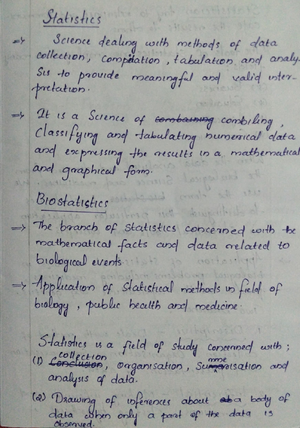 Statistics
⇒ Science dealing with methods of data
collection, compilation, tabulation, and analy
sis to provide meaningful and valid inter-
pretation.
⇒ It is a Science of combaining combiling,
Classifying and tabulating numerical data
and expressing the results in a mathematical
and graphical form.
Biostatistics
⇒ The branch of Statistics concerned with the
mathematical facts and data related to
biological events
⇒ Application of Statistical methods in field of
biology, public health and medicine.
Statistics is a field of study concerned with;
collection
(1) Conclusion, organisation, Summerisation and
analysis of data.
(2) Drawing of inferences about a body of
data when only a part of the data is
observed.